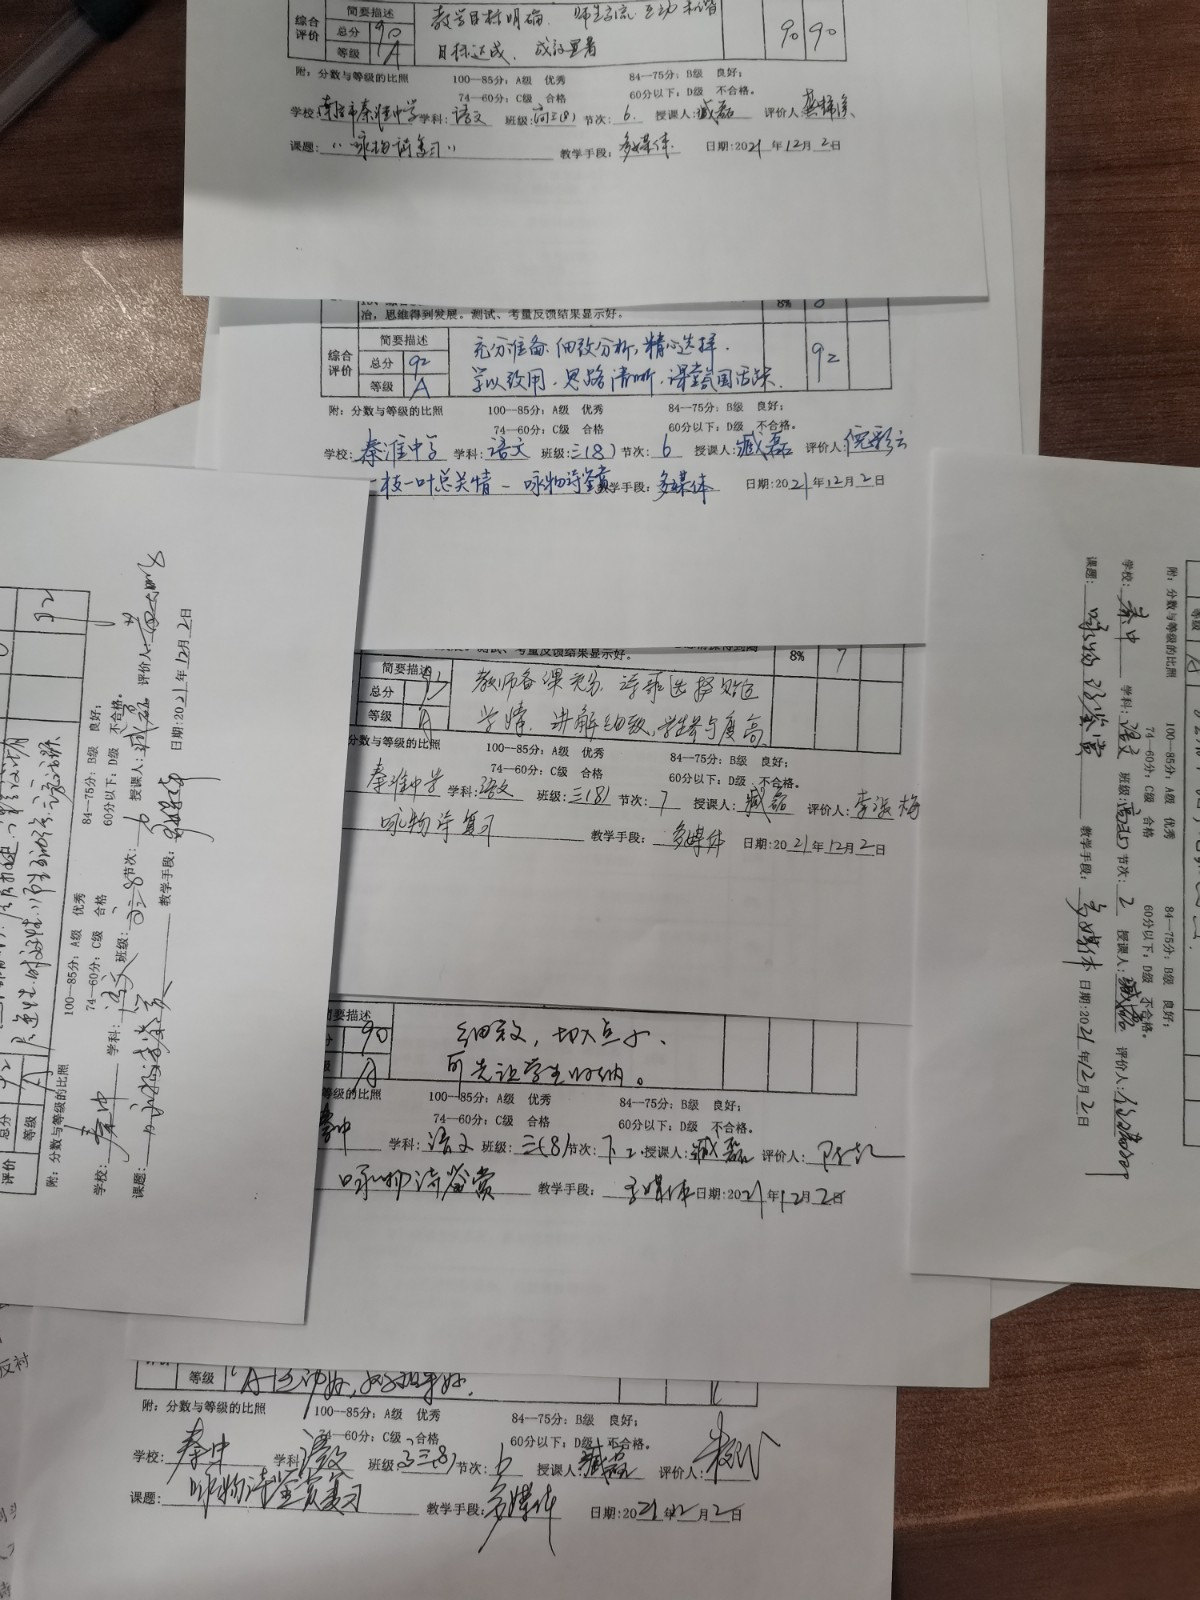 综合评价 简要描述 教学目标明确 师生交流 互动和谐
总分 90 90 90
等级 A 目标达成 成效显著
附：分数与等级的比照 100--85分：A级 优秀 84--75分：B级 良好；
74--60分：C级 合格 60分以下：D级 不合格。
学校: 南京市秦淮中学 学科: 语文 班级: 高三(8) 节次: 6 授课人: 臧磊 评价人:
课题: "咏物诗复习" 教学手段: 多媒体 日期:2021年12月2日
8%
冶，思维得到发展。测试、考量反馈结果显示好。
综合评价 简要描述 充分准备、细致分析，精心选择.
总分 92 92
等级 A 学以致用，思路清晰，课堂氛围活跃.
附：分数与等级的比照 100--85分：A级 优秀 84--75分：B级 良好；
74--60分：C级 合格 60分以下：D级 不合格。
学校: 秦淮中学 学科: 语文 班级: 三(8) 节次: 6 授课人: 臧磊 评价人: 倪彩云
一枝一叶总关情 - 咏物诗鉴赏 教学手段: 多媒体 日期:2021年12月2日
测试、考量反馈结果显示好。 8% 7
简要描述 教师备课充分，诗歌选择贴近
总分 93
等级 A 学情，讲解细致，学生参与度高
分数与等级的比照 100--85分：A级 优秀 84--75分：B级 良好；
74--60分：C级 合格 60分以下：D级 不合格。
秦淮中学 学科: 语文 班级: 三(8) 节次: 7 授课人: 臧磊 评价人:
咏物诗复习 教学手段: 多媒体 日期:2021年12月2日
简要描述
90 细致，切入点小、
A 可先让学生归纳。
等级的比照 100--85分：A级 优秀 84--75分：B级 良好；
74--60分：C级 合格 60分以下：D级 不合格。
秦中 学科: 语文 班级: 三(8) 节次: 下2 授课人: 臧磊 评价人:
咏物诗鉴赏 教学手段: 多媒体 日期:2021年12月2日
等级 A
附：分数与等级的比照 100--85分：A级 优秀 84--75分：B级 良好；
74--60分：C级 合格 60分以下：D级 不合格。
学校: 秦中 学科: 语文 班级: 高三(8) 节次: 6 授课人: 臧磊 评价人:
课题: 咏物诗鉴赏复习 教学手段: 多媒体 日期:2021年12月2日
92
评价 总分 92
等级 A
附：分数与等级的比照 100--85分：A级 优秀 84--75分：B级 良好；
74--60分：C级 合格 60分以下：D级 不合格。
学校: 秦中 学科: 语文 班级: 高三8 节次: 6 授课人: 臧磊 评价人:
课题: 教学手段: 多媒体 日期:2021年12月2日
等级
附：分数与等级的比照 100--85分：A级 优秀 84--75分：B级 良好；
74--60分：C级 合格 60分以下：D级 不合格。
学校: 秦中 学科: 语文 班级: 节次: 2 授课人: 臧磊 评价人:
课题: 咏物诗鉴赏 教学手段: 多媒体 日期:2021年12月2日
反衬